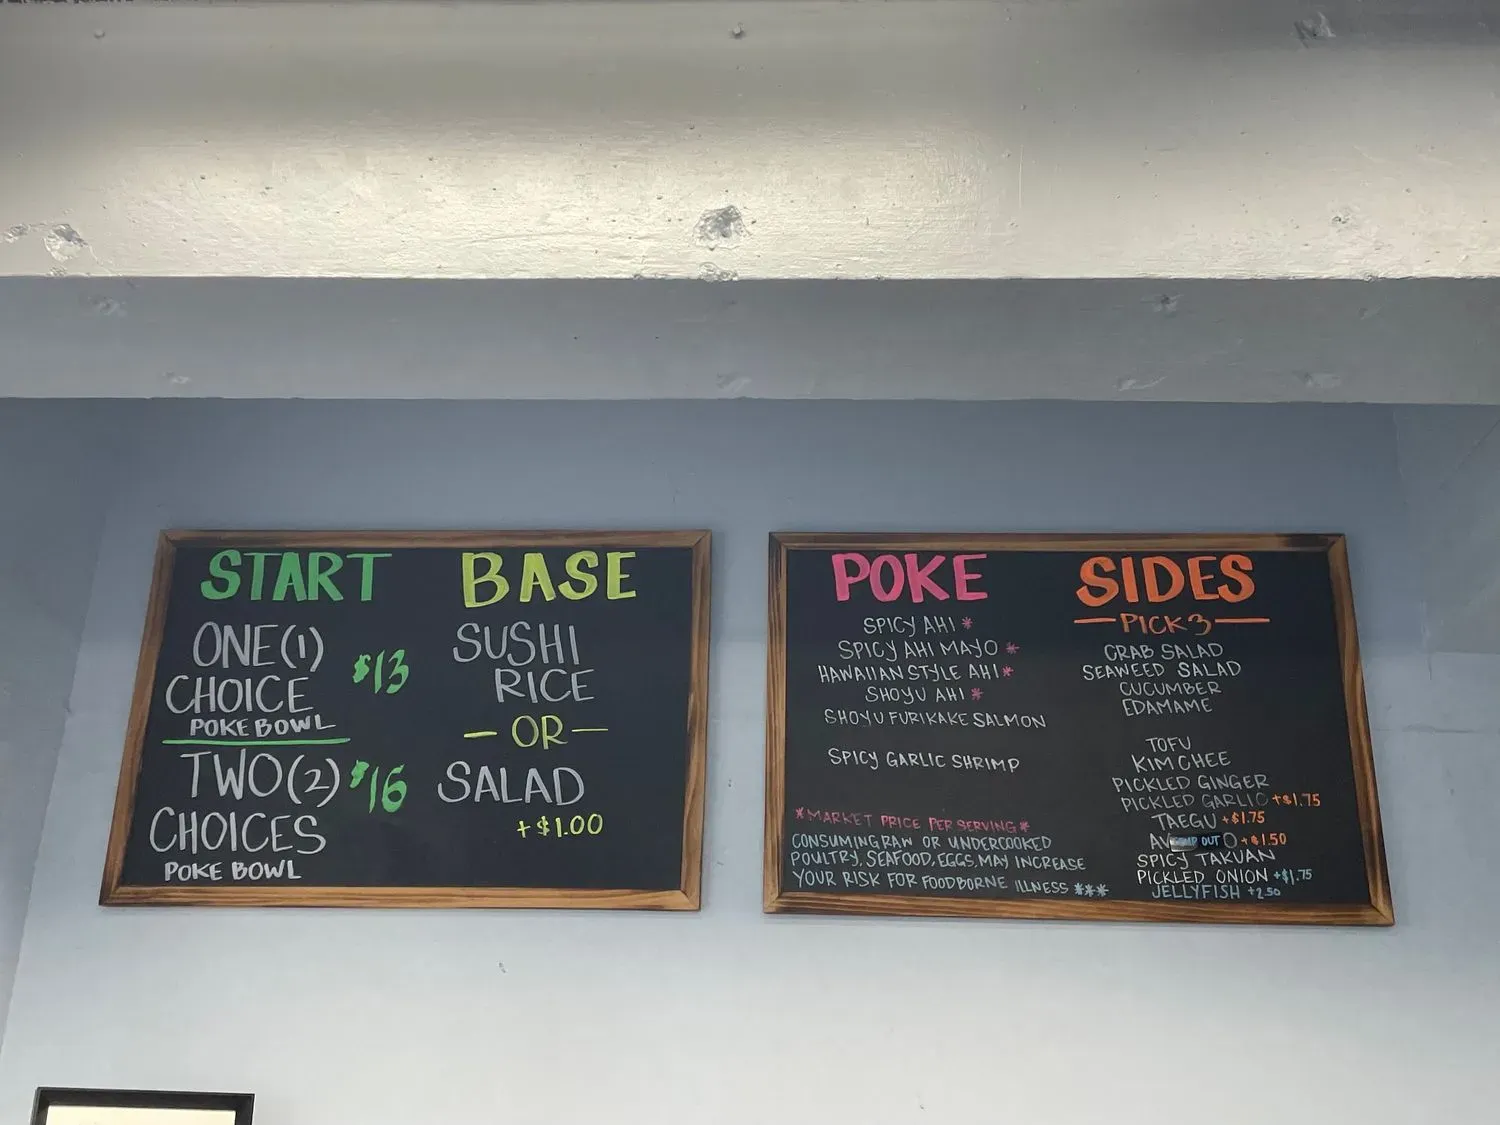 START
ONE(1)
CHOICE
POKE BOWL
$13
TWO(2)
CHOICES
POKE BOWL
$16
BASE
SUSHI
RICE
— OR —
SALAD
+$1.00
POKE
SPICY AHI *
SPICY AHI MAYO *
HAWAIIAN STYLE AHI *
SHOYU AHI *
SHOYU FURIKAKE SALMON
SPICY GARLIC SHRIMP
*MARKET PRICE PER SERVING*
CONSUMING RAW OR UNDERCOOKED
POULTRY, SEAFOOD, EGGS, MAY INCREASE
YOUR RISK FOR FOODBORNE ILLNESS ***
SIDES
— PICK 3 —
CRAB SALAD
SEAWEED SALAD
CUCUMBER
EDAMAME
TOFU
KIM CHEE
PICKLED GINGER
PICKLED GARLIC +$1.75
TAEGU +$1.75
OUT +$1.50
SPICY TAKUAN
PICKLED ONION +$1.75
JELLYFISH +2.50